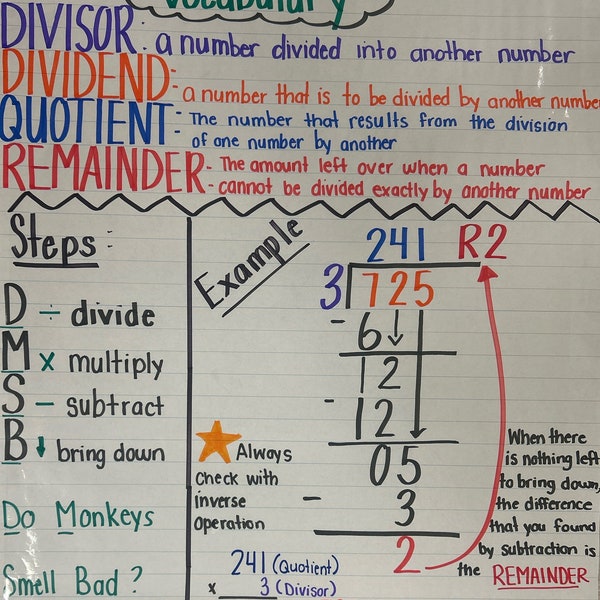 Vocabulary
DIVISOR: a number divided into another number
DIVIDEND: a number that is to be divided by another number
QUOTIENT: The number that results from the division
of one number by another
REMAINDER - The amount left over when a number
- cannot be divided exactly by another number
Steps:
D ÷ divide
M x multiply
S - subtract
B ↓ bring down
Do Monkeys
Smell Bad?
Example
241 R2
3 725
- 6 ↓
12
- 12
05
- 3
2
Always
Check with
inverse
operation
241 (Quotient)
x 3 (Divisor)
When there
is nothing left
to bring down,
the difference
that you found
by subtraction is
the REMAINDER